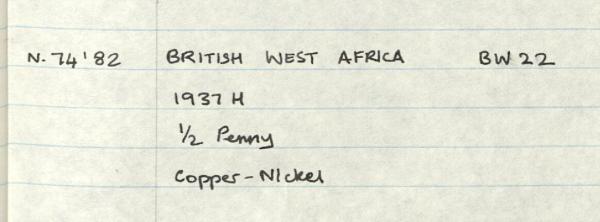 N. 74'82 BRITISH WEST AFRICA BW 22
1937 H
1/2 Penny
Copper-Nickel